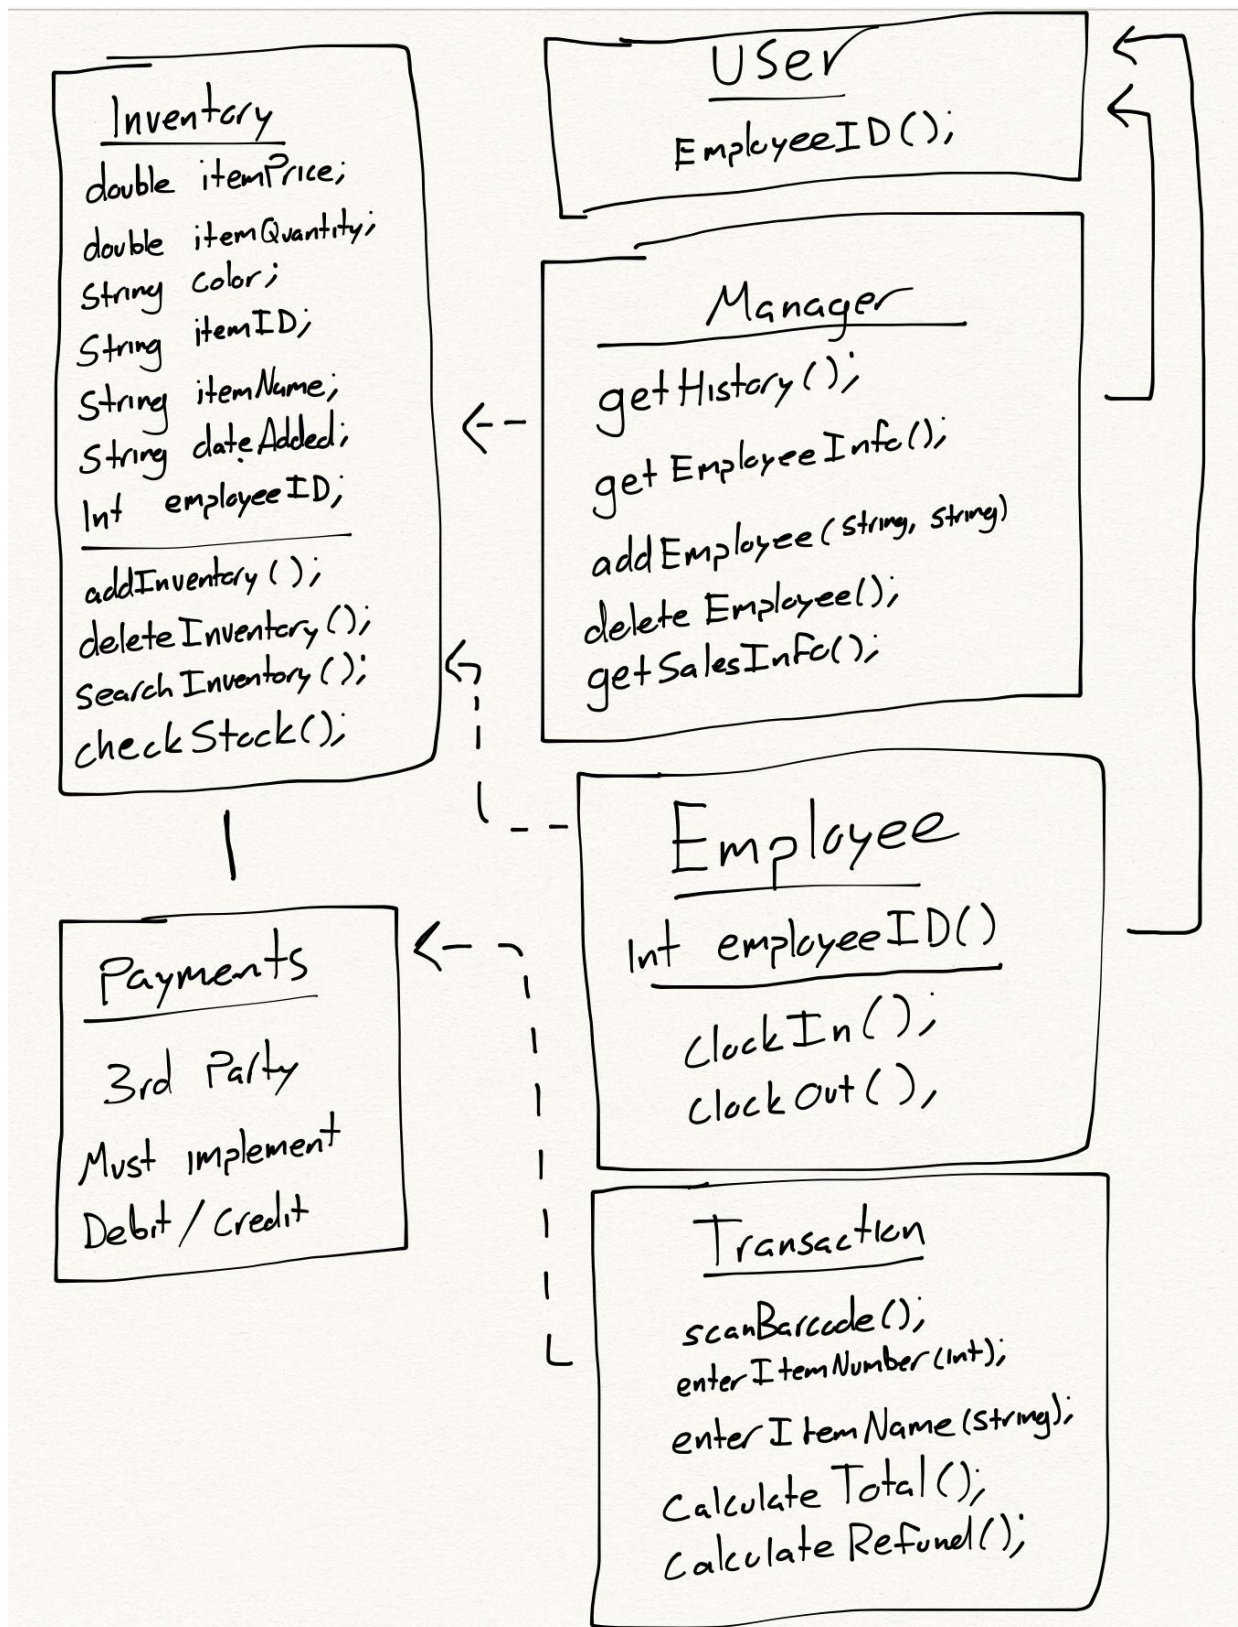 Inventory
double itemPrice;
double itemQuantity;
String Color;
String itemID;
String itemName;
String dateAdded;
Int employeeID;
addInventory();
deleteInventory();
searchInventory();
checkStock();
Payments
3rd Party
Must implement
Debit/Credit
User
EmployeeID();
Manager
getHistory();
getEmployeeInfo();
addEmployee(String, String)
deleteEmployee();
getSalesInfo();
Employee
Int employeeID()
ClockIn();
ClockOut();
Transaction
scanBarcode();
enterItemNumber(int);
enterItemName(String);
Calculate Total();
Calculate Refund();